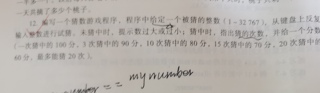 一天共摘了多少个桃子。
12. 编写一个猜数游戏程序，程序中给定一个被猜的整数（1~32 767），从键盘上反复
输入整数进行试猜。未猜中时，提示数过大或过小；猜中时，指出猜的次数，并给一个分数
（一次猜中的 100 分，3 次猜中的 90 分，10 次猜中的 80 分，15 次猜中的 70 分，20 次猜中的
60 分，最多能猜 20 次）。
number == mynumber